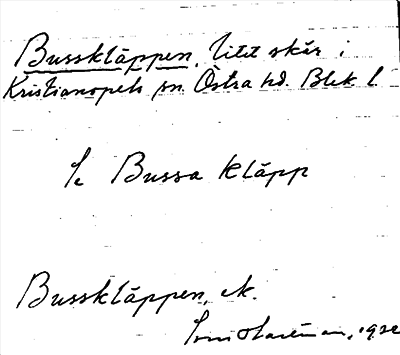 Bussklåppen, litet skär i
Kristianopels sn. Östra hd. Blek l.
Se Bussa klåpp
Bussklåppen, ek.